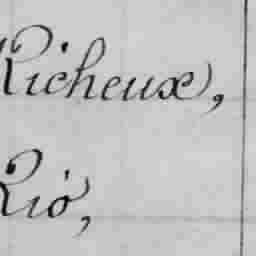 Richeux,
Rio,